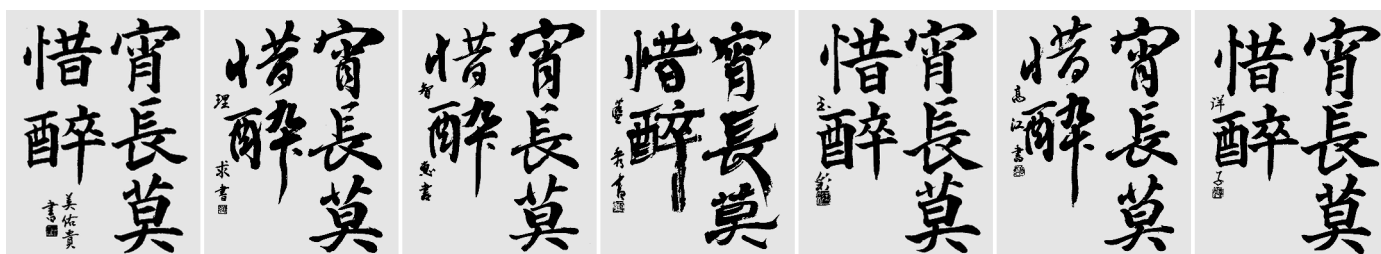 宵長莫
惜醉
美佑貴書
宵長莫
惜醉
理求書
宵長莫
惜醉
智恵書
宵長莫
惜醉
宵長莫
惜醉
宵長莫
惜醉
高江書
宵長莫
惜醉
洋子